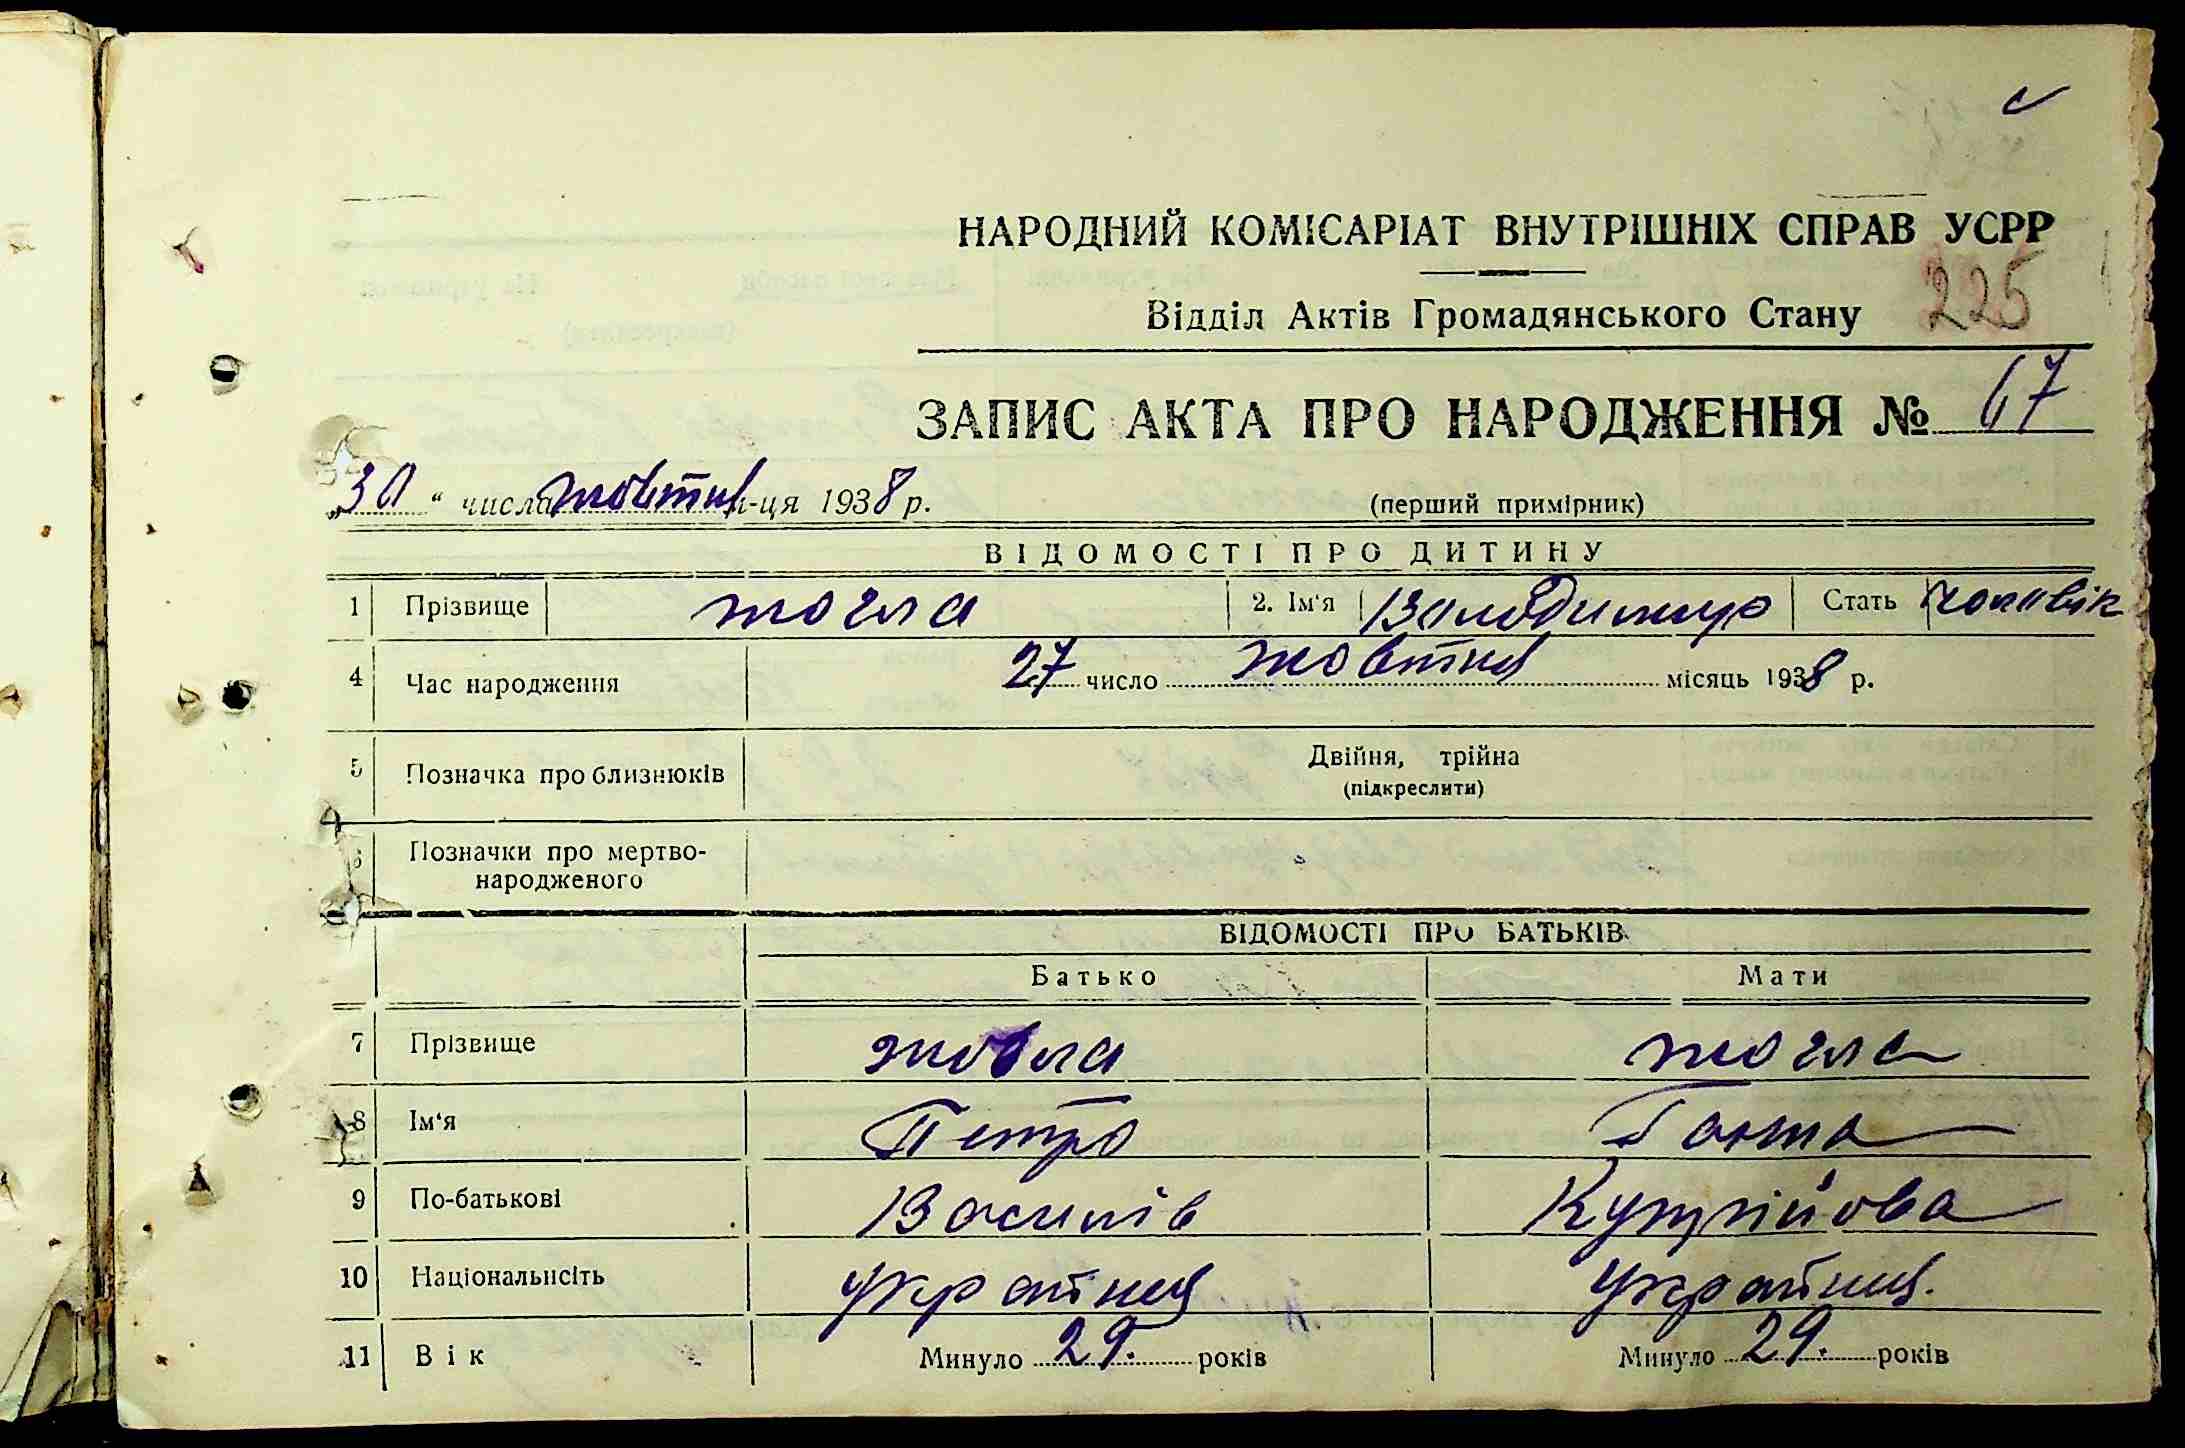 НАРОДНИЙ КОМІСАРІАТ ВНУТРІШНІХ СПРАВ УСРР
225
Відділ Актів Громадянського Стану
ЗАПИС АКТА ПРО НАРОДЖЕННЯ № 67
„30 “ числа жовтня м-ця 1938 р. (перший примірник)
ВІДОМОСТІ ПРО ДИТИНУ
1 Прізвище Жогла 2. Ім'я Володимир Стать чоловік
4 Час народження 27 число жовтня місяць 1938 р.
5 Позначка про близнюків Двійня, трійна
(підкреслити)
6 Позначки про мертво-
народженого
ВІДОМОСТІ ПРО БАТЬКІВ
Батько Мати
7 Прізвище Жогла Жогла
8 Ім'я Петро Ганна
9 По-батькові Василів Купрійова
10 Національність Українец Українец.
11 Вік Минуло 29. років Минуло 29. років